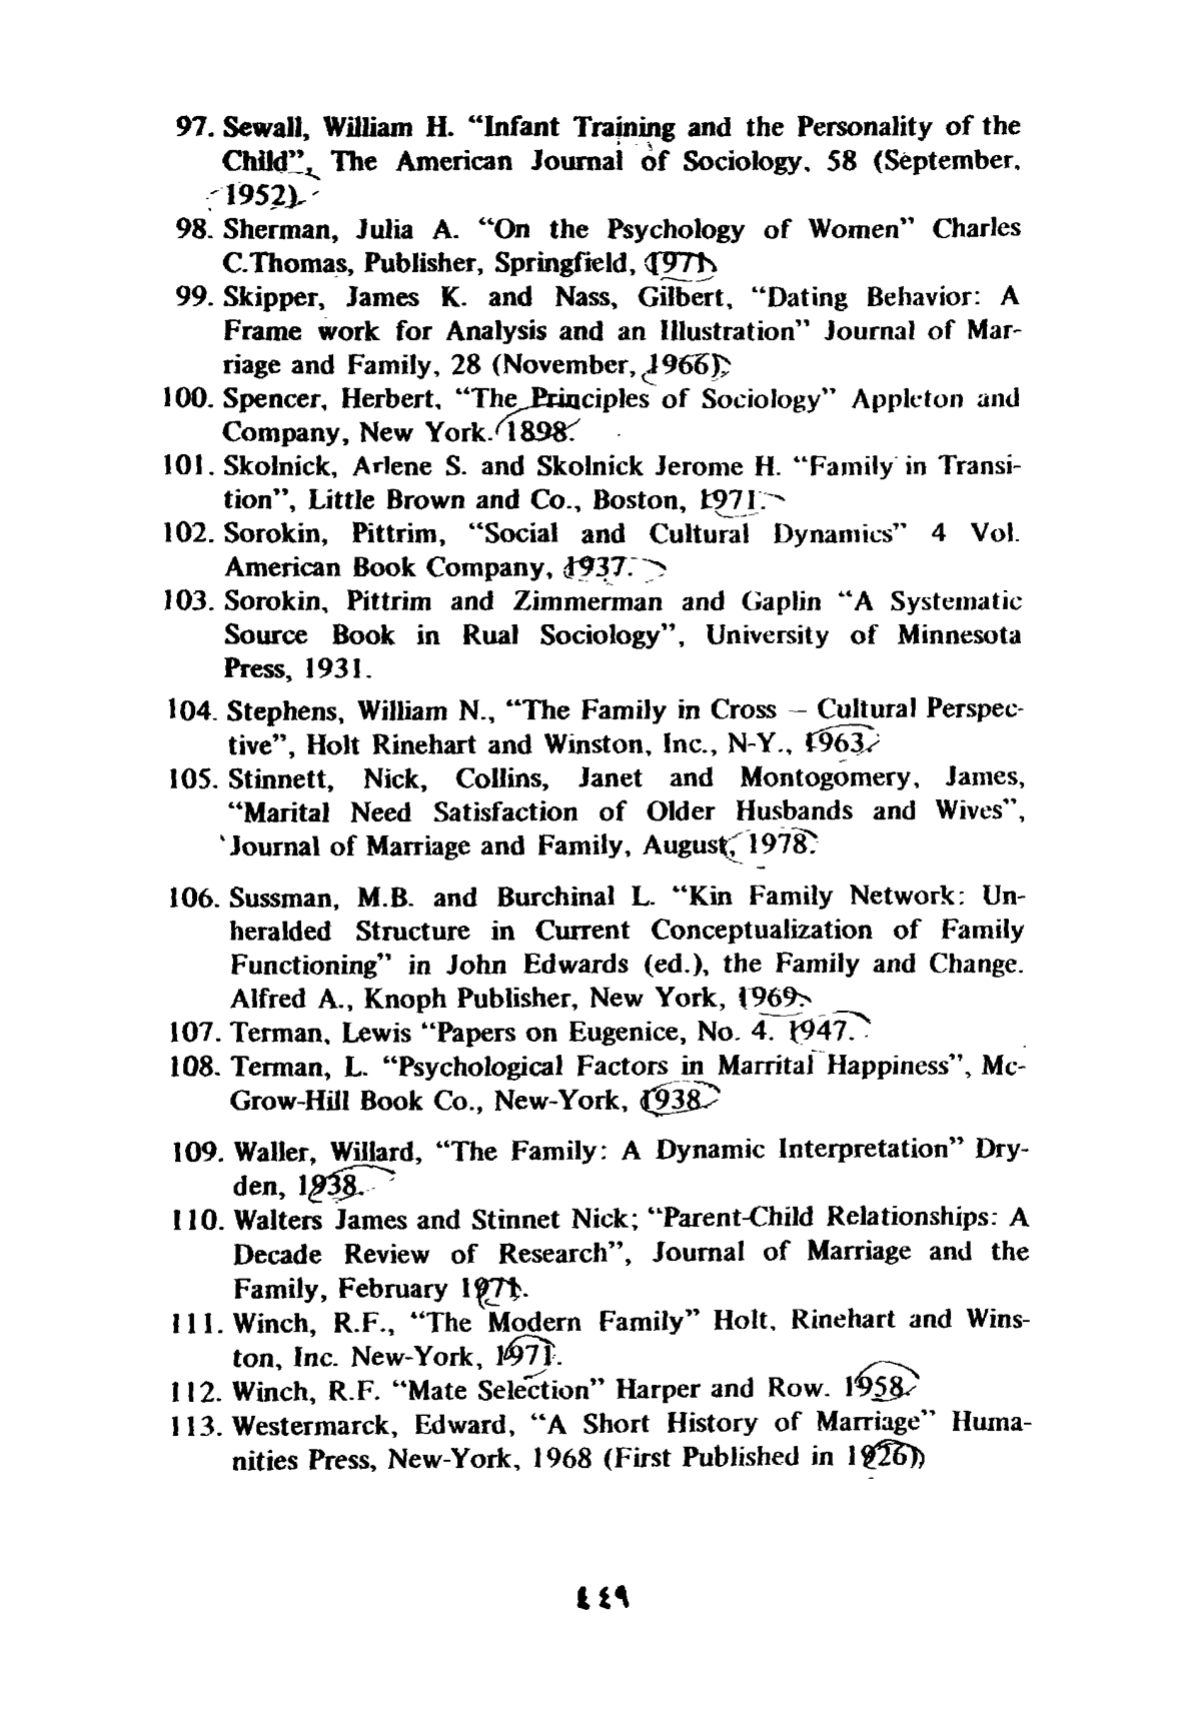 97. Sewall, William H. “Infant Training and the Personality of the
Child”, The American Journal of Sociology. 58 (September,
1952).
98. Sherman, Julia A. “On the Psychology of Women” Charles
C.Thomas, Publisher, Springfield, (1971)
99. Skipper, James K. and Nass, Gilbert, “Dating Behavior: A
Frame work for Analysis and an Illustration” Journal of Mar-
riage and Family, 28 (November, 1966).
100. Spencer, Herbert, “The Principles of Sociology” Appleton and
Company, New York. 1898.
101. Skolnick, Arlene S. and Skolnick Jerome H. “Family in Transi-
tion”, Little Brown and Co., Boston, 1971.
102. Sorokin, Pittrim, “Social and Cultural Dynamics” 4 Vol.
American Book Company, 1937.
103. Sorokin, Pittrim and Zimmerman and Gaplin “A Systematic
Source Book in Rual Sociology”, University of Minnesota
Press, 1931.
104. Stephens, William N., “The Family in Cross – Cultural Perspec-
tive”, Holt Rinehart and Winston, Inc., N-Y., 1963.
105. Stinnett, Nick, Collins, Janet and Montogomery, James,
“Marital Need Satisfaction of Older Husbands and Wives”,
Journal of Marriage and Family, August, 1978.
106. Sussman, M.B. and Burchinal L. “Kin Family Network: Un-
heralded Structure in Current Conceptualization of Family
Functioning” in John Edwards (ed.), the Family and Change.
Alfred A., Knoph Publisher, New York, 1969.
107. Terman, Lewis “Papers on Eugenice, No. 4. 1947.
108. Terman, L. “Psychological Factors in Marrital Happiness”, Mc-
Grow-Hill Book Co., New-York, 1938.
109. Waller, Willard, “The Family: A Dynamic Interpretation” Dry-
den, 1938.
110. Walters James and Stinnet Nick; “Parent-Child Relationships: A
Decade Review of Research”, Journal of Marriage and the
Family, February 1971.
111. Winch, R.F., “The Modern Family” Holt, Rinehart and Wins-
ton, Inc. New-York, 1971.
112. Winch, R.F. “Mate Selection” Harper and Row. 1958.
113. Westermarck, Edward, “A Short History of Marriage” Huma-
nities Press, New-York, 1968 (First Published in 1926)
٤٤٩